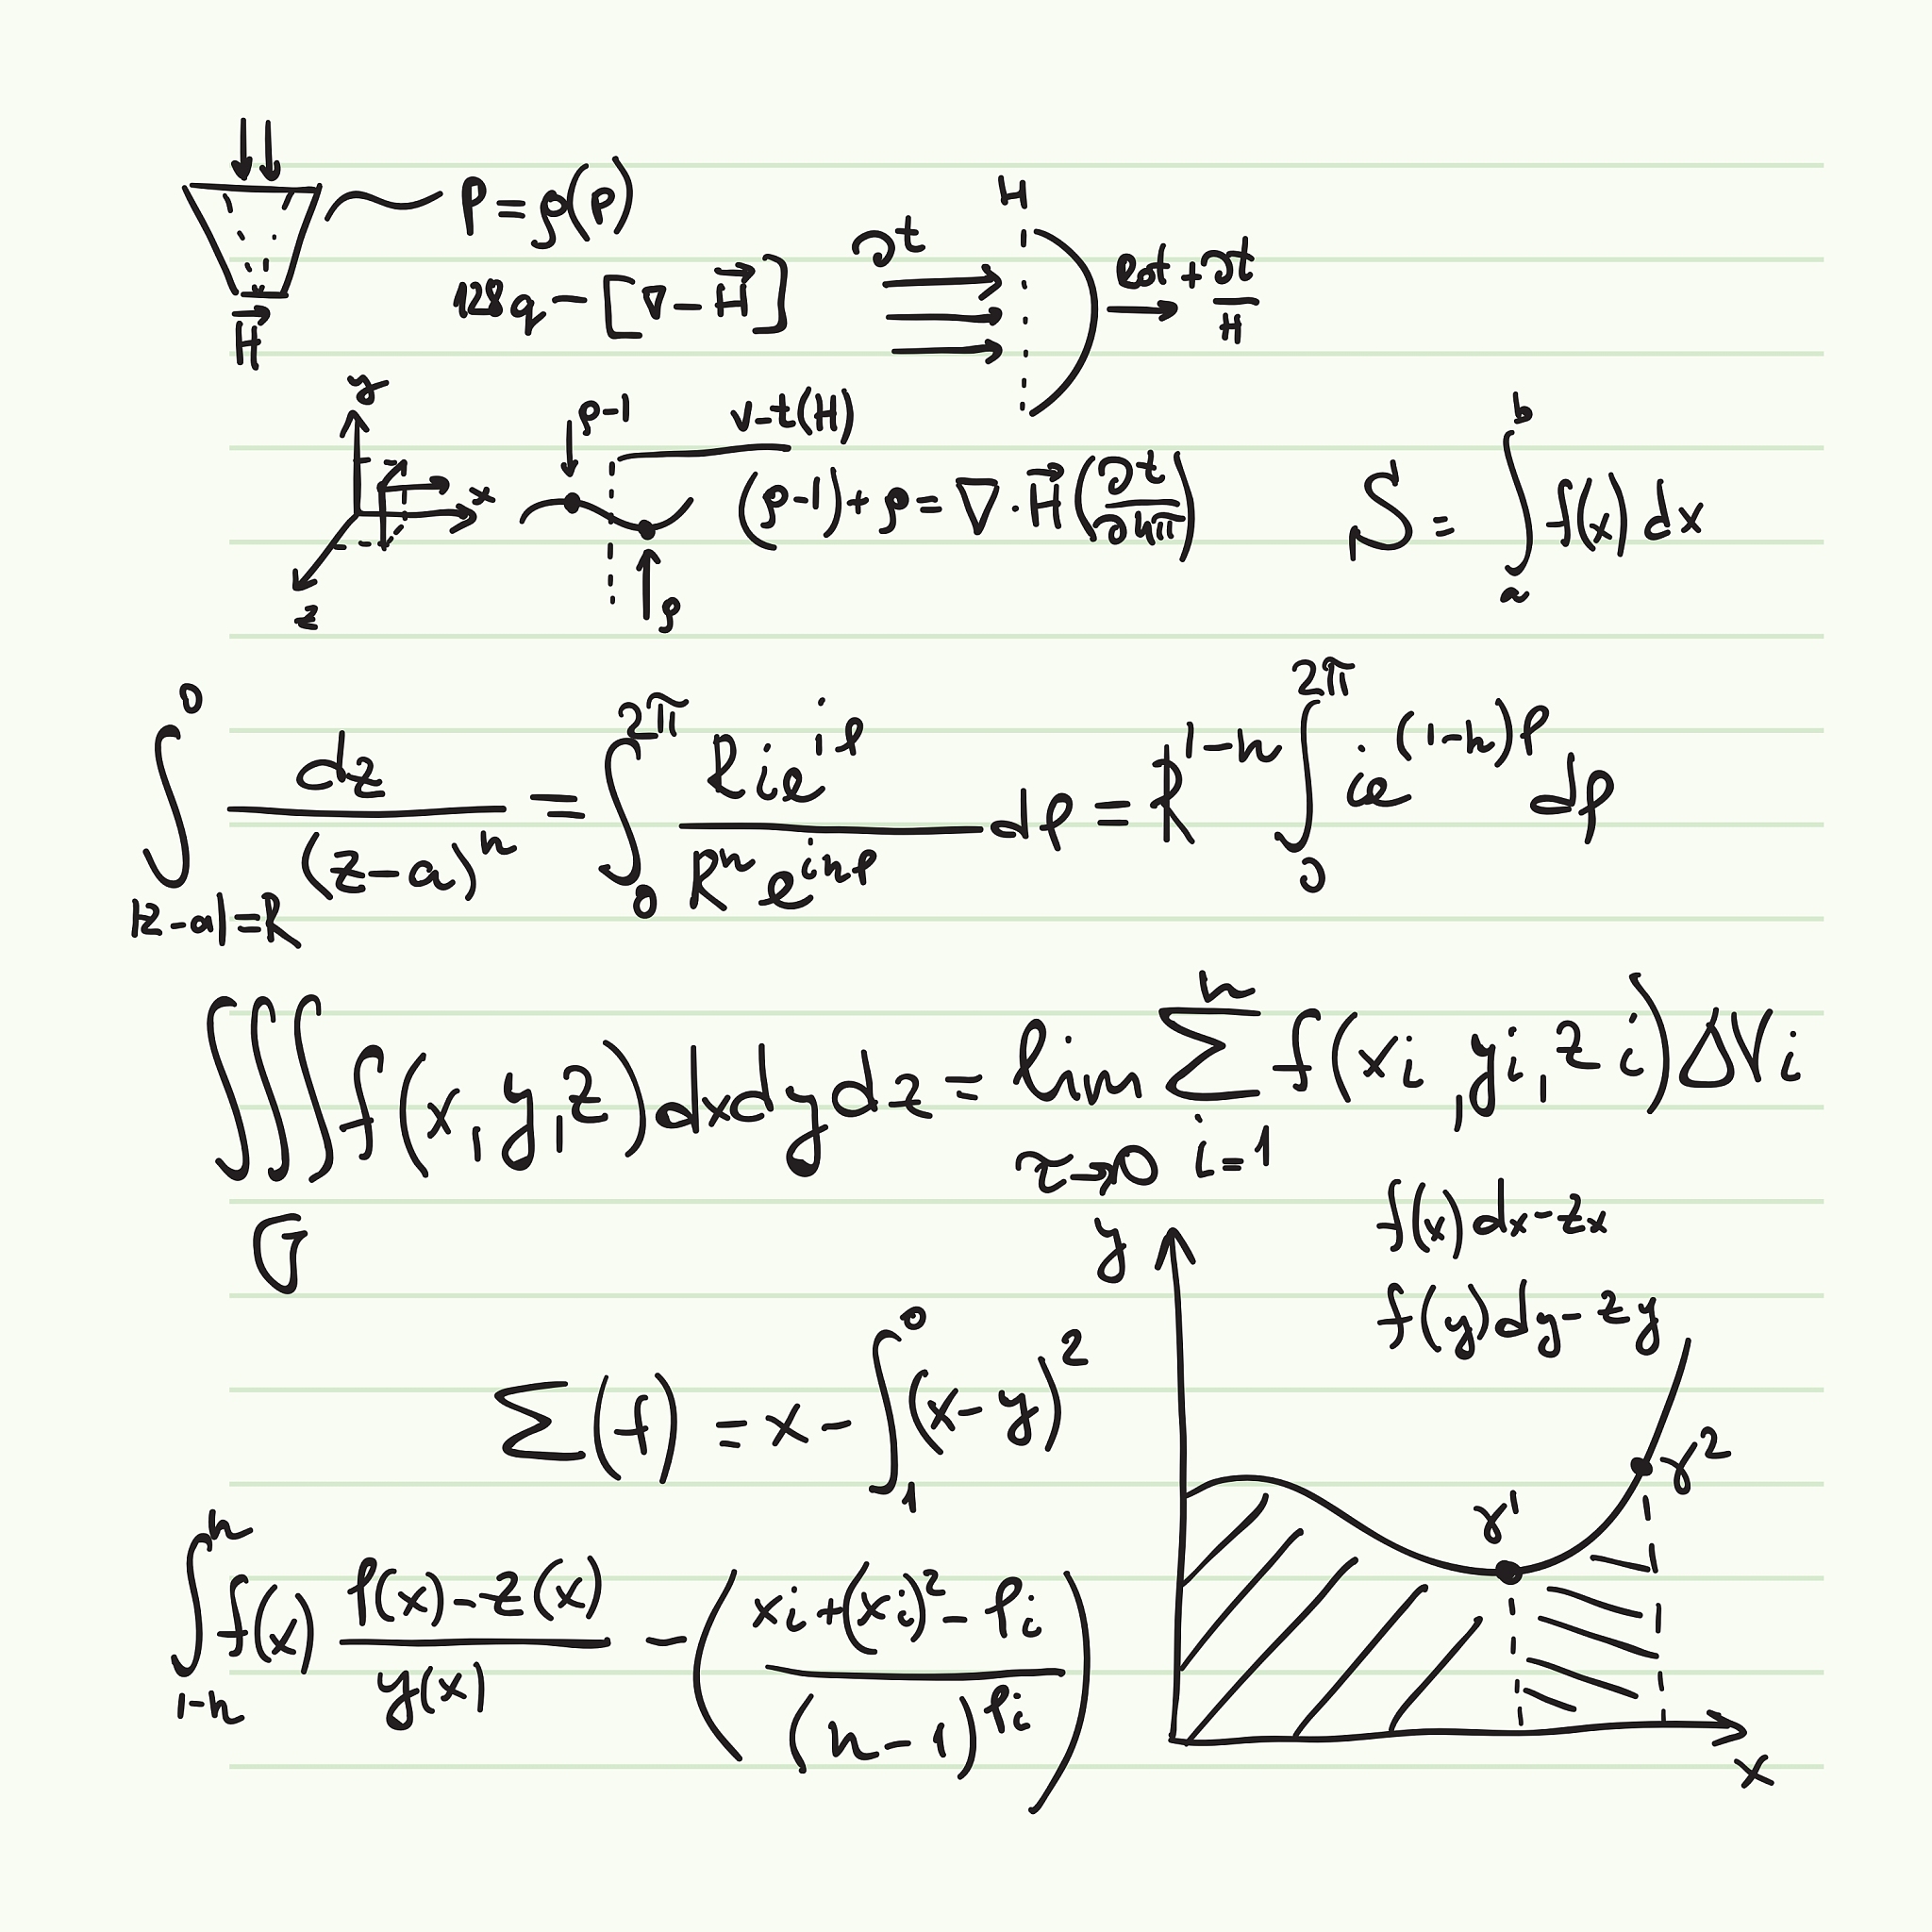 p = ρ(p)
128q - [∇ - H⃗]
H⃗
∂t
H
Rot + ∂t/H
y
x
z
ρ-1
v-t(H)
ρ
(ρ-1) + ρ = ∇·H⃗(∂t/∂4π)
S = ∫_a^b f(x) dx
∫_{|z-a|=R}^0 dz/(z-a)^n = ∫_0^{2π} Rie^{iρ}/R^n e^{inρ} dρ = R^{1-n} ∫_0^{2π} ie^{(1-n)ρ} dρ
∭_G f(x, y, z) dx dy dz = lim_{τ→0} ∑_{i=1}^n f(xi, yi, zi) ΔVi
f(x) dx - zx
f(y) dy - zy
∑(f) = x - ∫_1^0 (x-y)^2
∫_{1-n}^n f(x) f(x)-z(x)/y(x) - (xi+(xi)^2 - Pi/(n-1)^{Pi})
y
γ'
γ^2
x